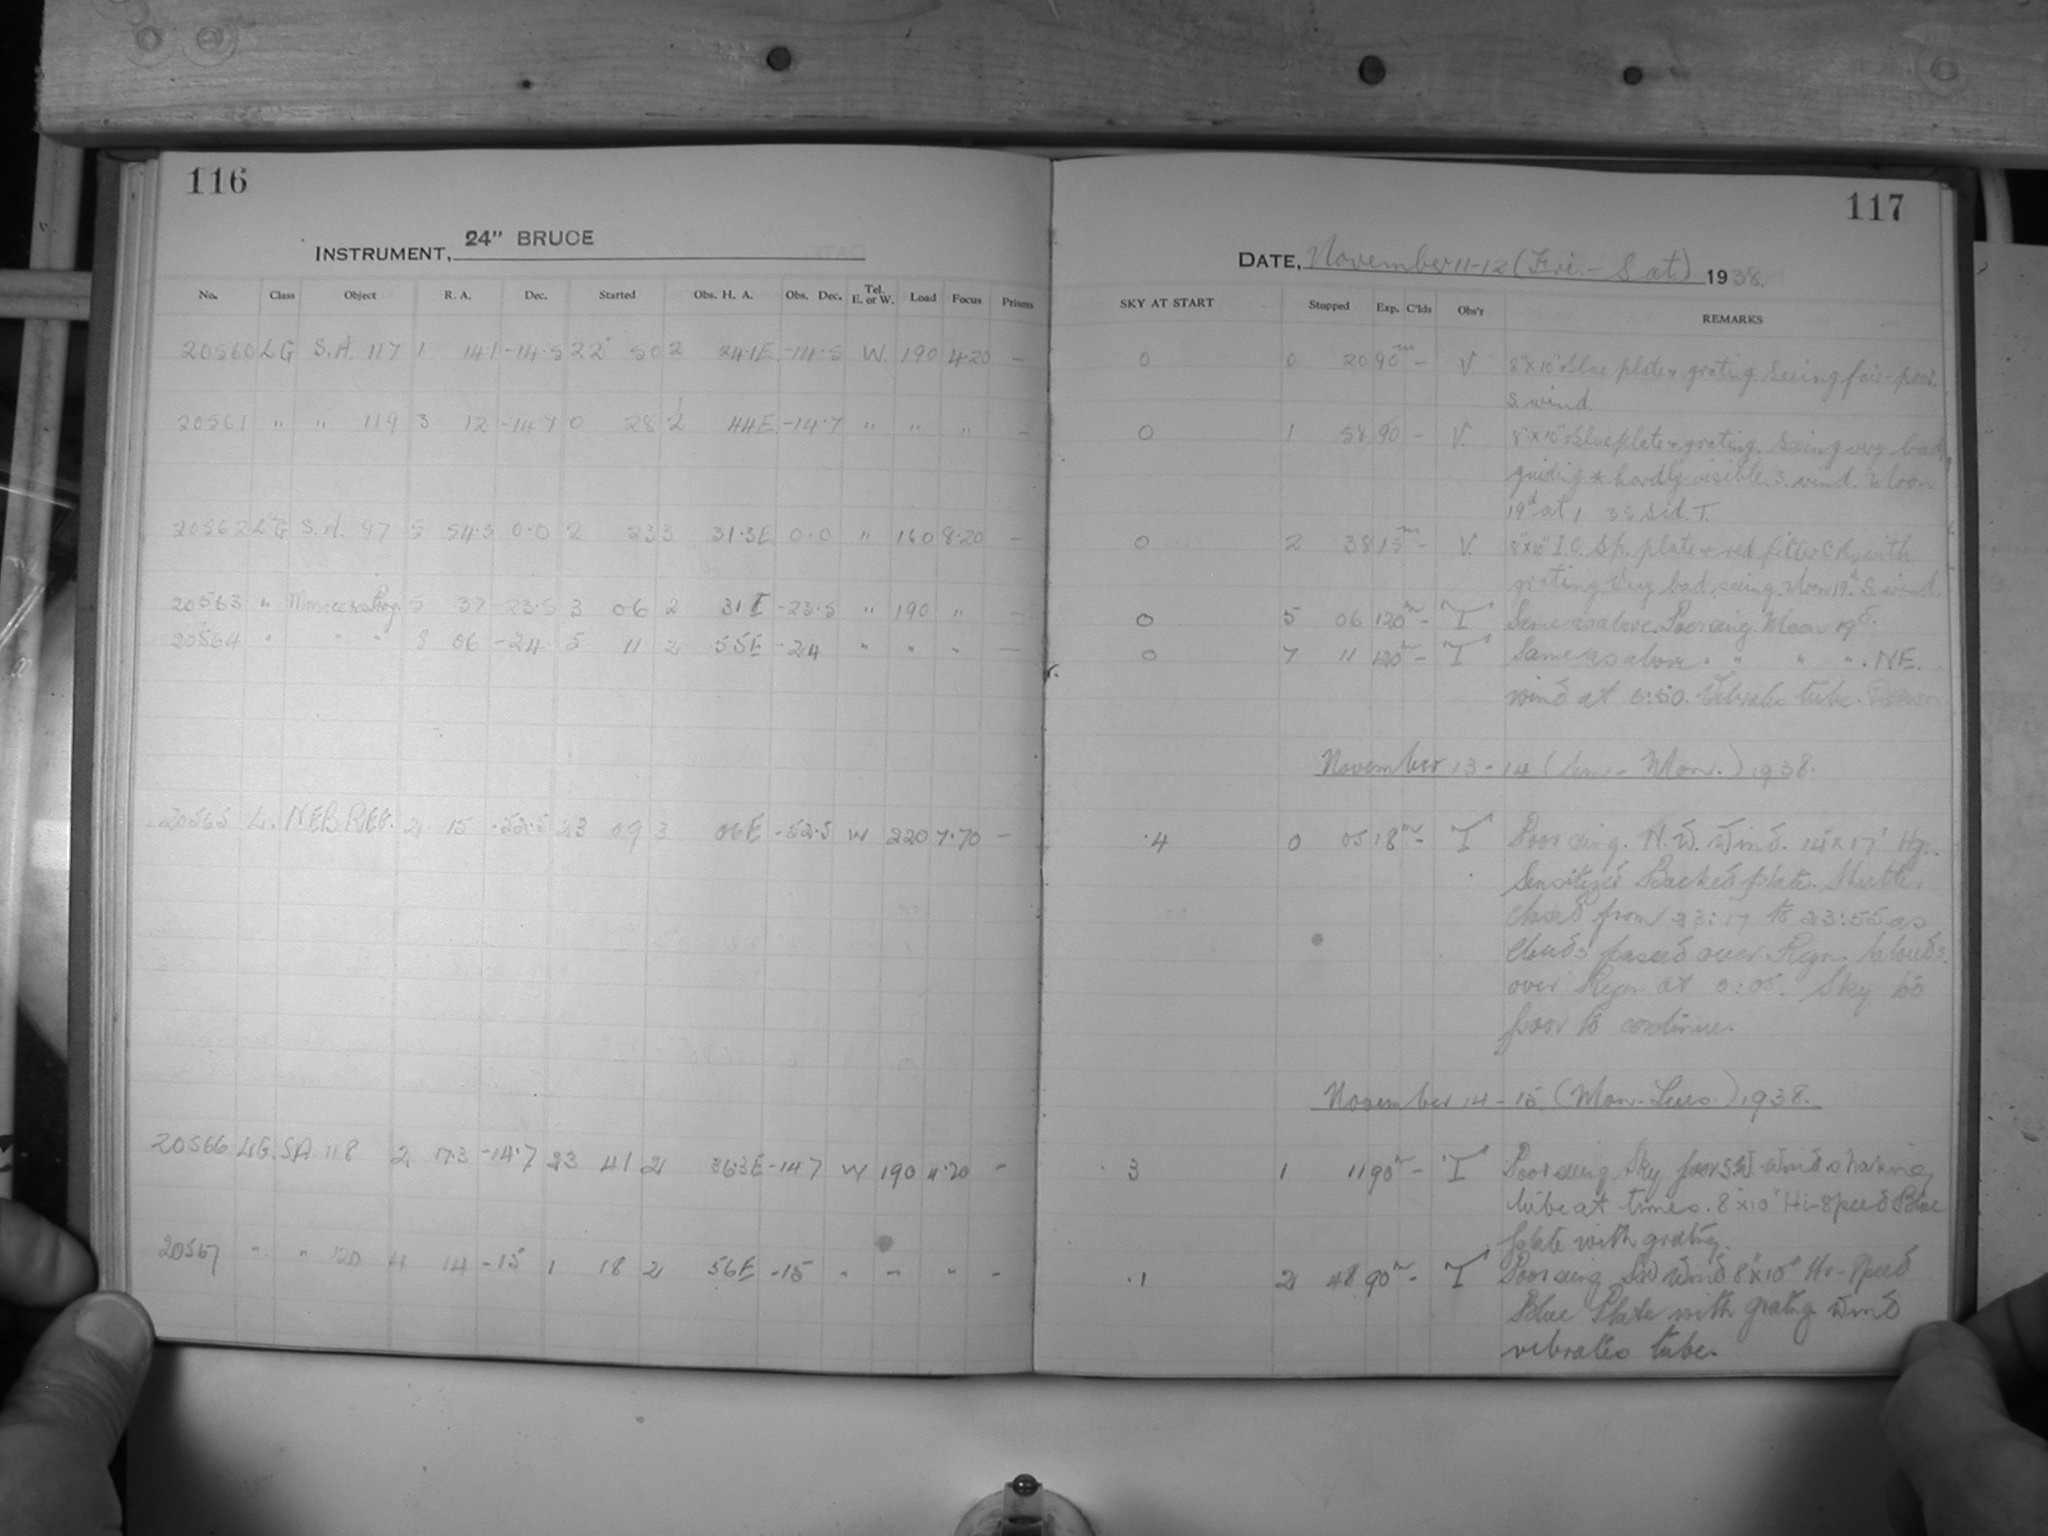 116
INSTRUMENT, 24" BRUCE
No. Class Object R. A. Dec. Started Obs. H. A. Obs. Dec. Tel. E. or W. Load Focus Prisms
20560 LG S.A. 117 1 141 -14.5 22 50 2 24.1E -14.5 W. 190 4.20 —
20561 " " 119 3 12 -14.7 0 28 2 44E -14.7 " " " —
20562 LG S.A. 97 5 54.3 0.0 2 23 3 31.3E 0.0 " 160 8.20 —
20563 " 5 37 -23.5 3 06 2 31E -23.5 " 190 " —
20564 " " " 8 06 -24 5 11 2 55E -24 " " " —
20565 L. 2 15 -52.5 23 09 3 06E -52.5 W 220 7.70 —
20566 LG. SA. 118 2 17.3 -14.7 23 41 2 36.3E -14.7 W 190 4.20 —
20567 " " 120 4 14 -15 1 18 2 56E -15 " " " —
117
DATE, November 11-12 (Fri.- Sat.) 1938.
SKY AT START Stopped Exp. C'lds Obs'r REMARKS
0 0 20 90m - V. 8"x10" Blue plate + grating. Seeing fair-poor.
S. wind.
0 1 58 90 - V. 8"x10" Blue plate + grating. Seeing very bad,
guiding * hardly visible. S. wind. Moon
19d at 1 38 Sid. T.
0 2 38 15m - V. 8"x10" I.C. Sp. plate + red filter with
grating. Very bad seeing. Moon 19d. S. wind.
0 5 06 120m - T Same as above. Poor seeing. Moon 19d.
0 7 11 120m - T Same as above. " " ". NE.
wind at 6:50. Vibrates tube. Dawn
November 13-14 (Sun.- Mon.) 1938.
.4 0 05 18m - T Poor seeing. N.W. Wind. 14"x17" Hg.
Sensitized Backed plate. Shutter
closed from 23:17 to 23:55 as
Clouds passed over Regn. Clouds
over Regn at 0:05. Sky too
poor to continue.
November 14-15. (Mon-Tues.) 1938.
.3 1 11 90m - T Poor seeing Sky poor SW. Wind shaking
tube at times. 8"x10" Hi-Speed Blue
plate with grating.
.1 2 48 90m - T Poor seeing SW Wind 8"x10" Hi-Speed
Blue Plate with grating Wind
vibrates tube.